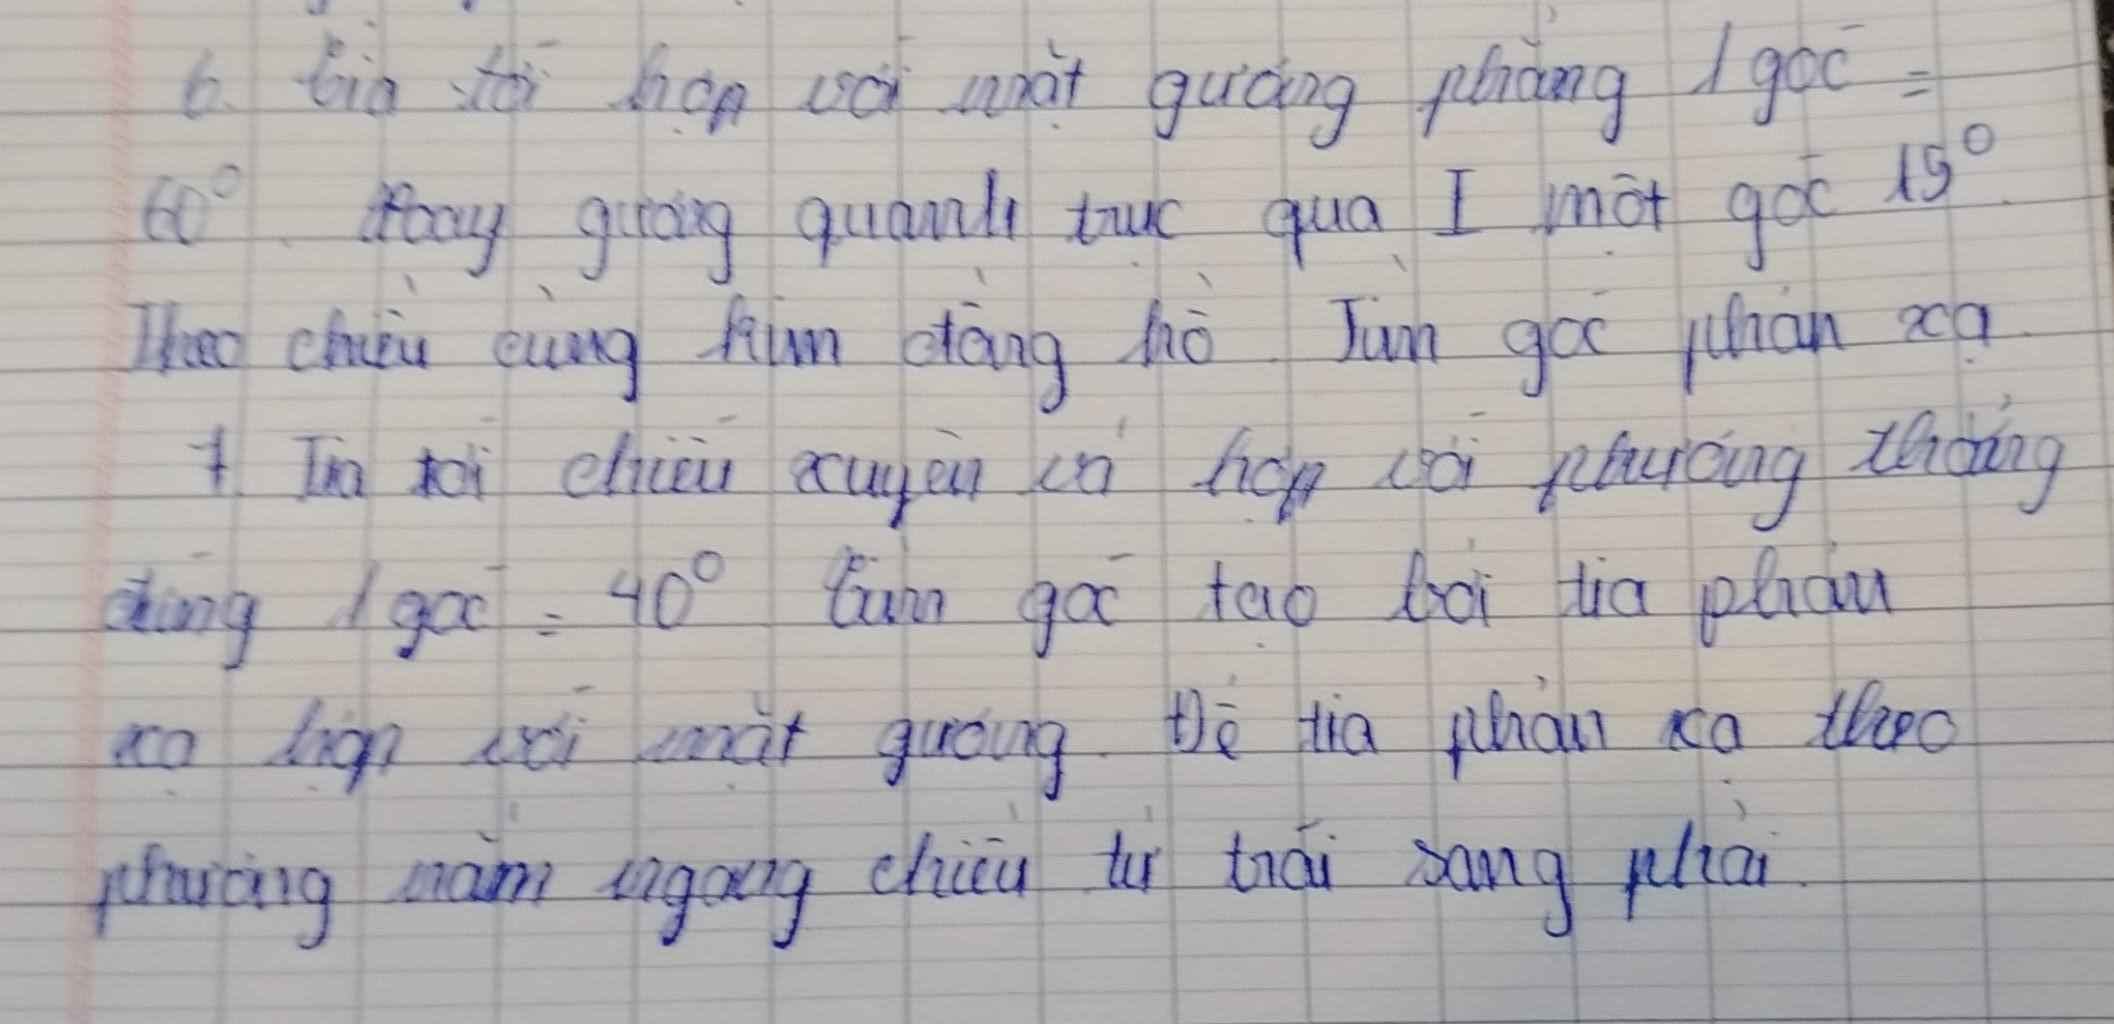 6. tia tới hợp với mặt gương phẳng 1 góc =
60°. Xoay gương quanh trục qua I một góc 15°
Theo chiều cùng kim đồng hồ. Tìm góc phản xạ
7. Tia tới chiếu xuyên và hợp với phương thẳng
đứng 1 góc = 40° tìm góc tạo bởi tia phản
xạ hợp với mặt gương. Để tia phản xạ theo
phương nằm ngang chiều từ trái sang phải.